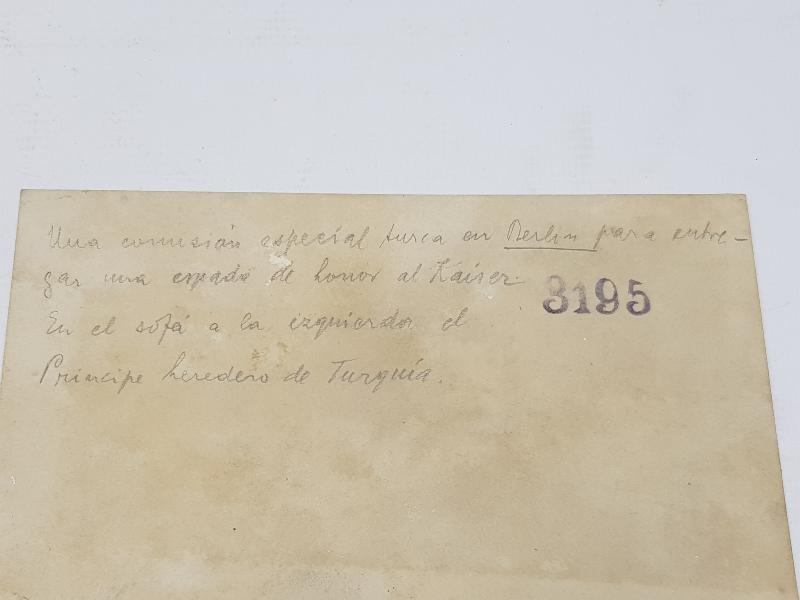 Una comisión especial turca en Berlin para entre-
gar una espada de honor al Kaiser.
3195
En el sofá a la izquierda el
Principe heredero de Turquía.